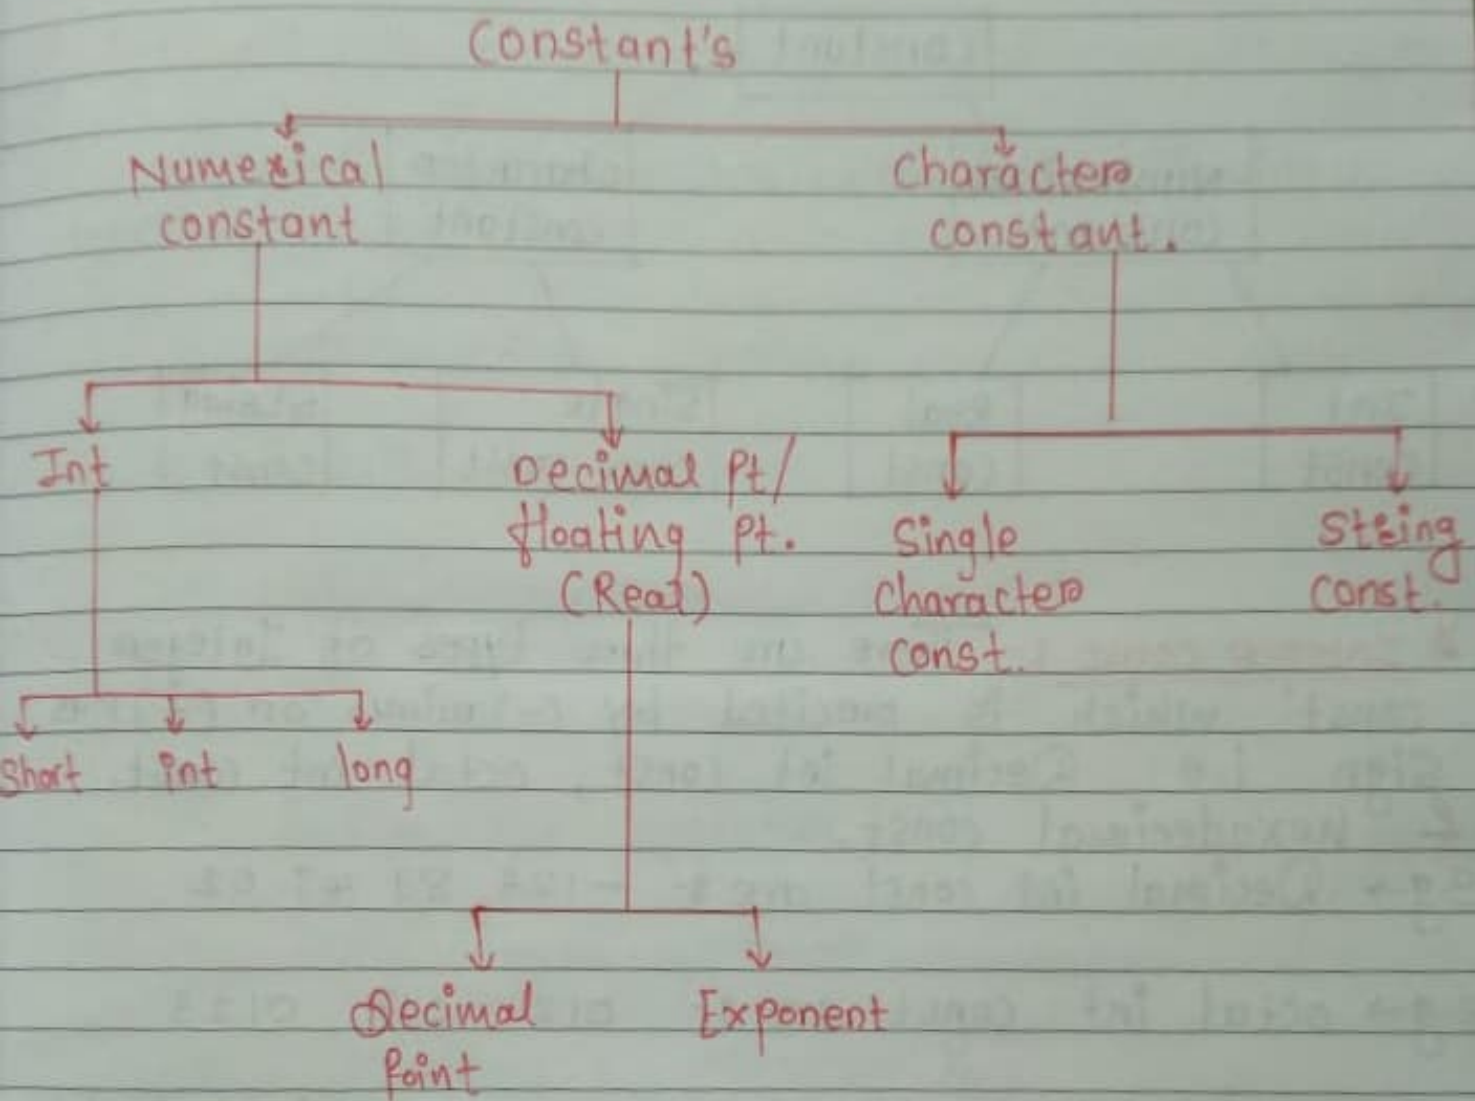 Constant's
Numerical
constant
Character
constant.
Int
Decimal Pt/
floating Pt.
(Real)
Single
character
const.
String
const.
Short int long
Decimal
Point
Exponent